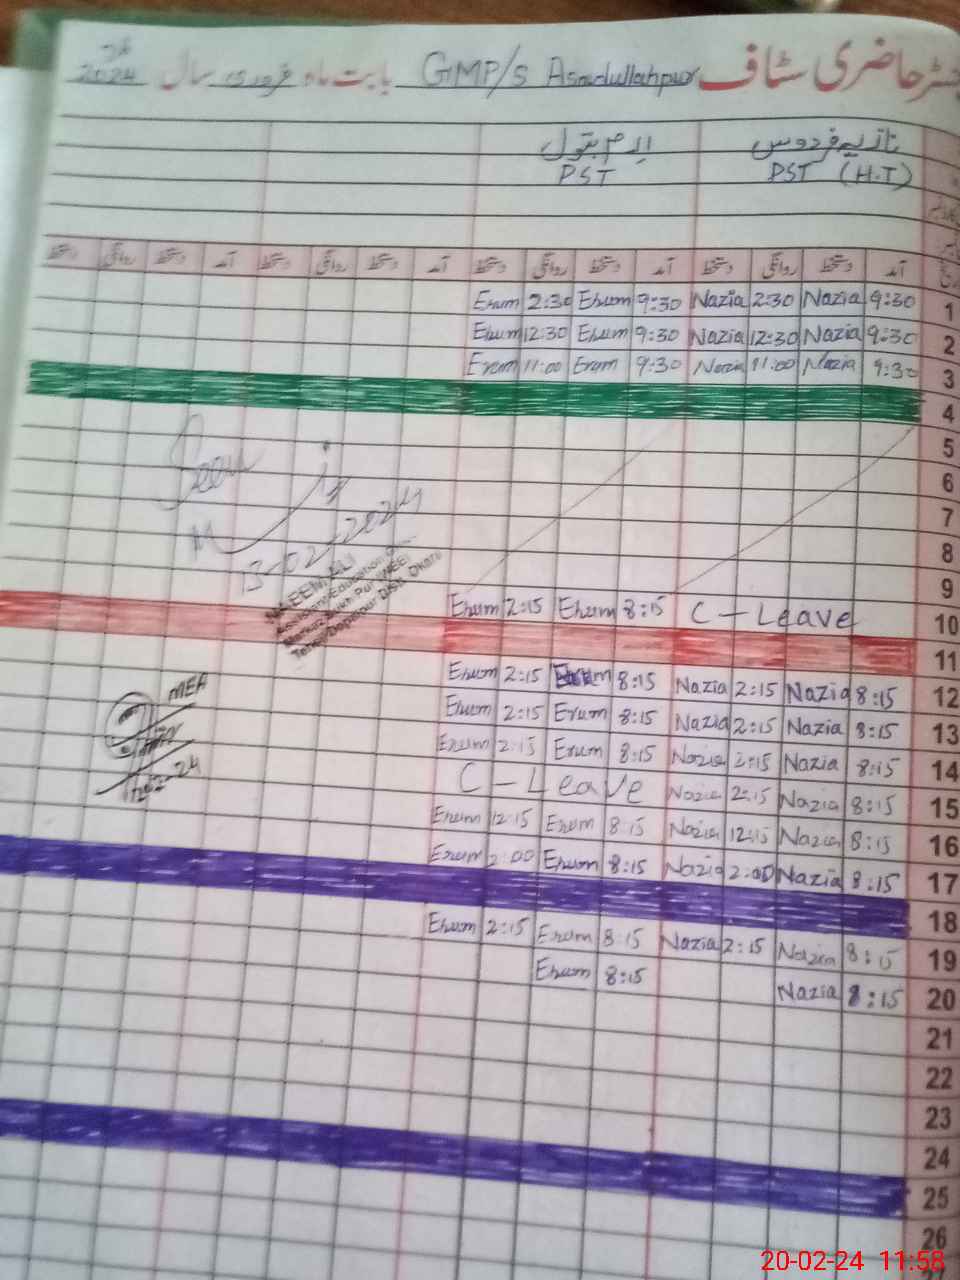 رجسٹر حاضری سٹاف GMP/s Asadullahpur بابت ماہ فروری سال 2024
نازیہ فردوس ارم بتول
PST (H.T) PST
آمد دستخط روانگی دستخط آمد دستخط روانگی دستخط آمد دستخط روانگی دستخط آمد دستخط روانگی دستخط
Erum 2:30 Erum 9:30 Nazia 2:30 Nazia 9:30 1
Erum 12:30 Erum 9:30 Nazia 12:30 Nazia 9:30 2
Erum 11:00 Erum 9:30 Nazia 11:00 Nazia 9:30 3
4
5
Seen
6
7
13-02-2024
8
NAEEM ALI
Assistant Education
9
Erum 2:15 Erum 8:15 C - Leave 10
11
Erum 2:15 Erum 8:15 Nazia 2:15 Nazia 8:15 12
MEA
Erum 2:15 Erum 8:15 Nazia 2:15 Nazia 8:15 13
Erum 2:15 Erum 8:15 Nazia 2:15 Nazia 8:15 14
C - Leave Nazia 2:15 Nazia 8:15 15
Erum 12:15 Erum 8:15 Nazia 12:15 Nazia 8:15 16
Erum 2:00 Erum 8:15 Nazia 2:00 Nazia 8:15 17
18
Erum 2:15 Erum 8:15 Nazia 2:15 Nazia 8:15 19
Erum 8:15 Nazia 8:15 20
21
22
23
24
25
26
20-02-24 11:58